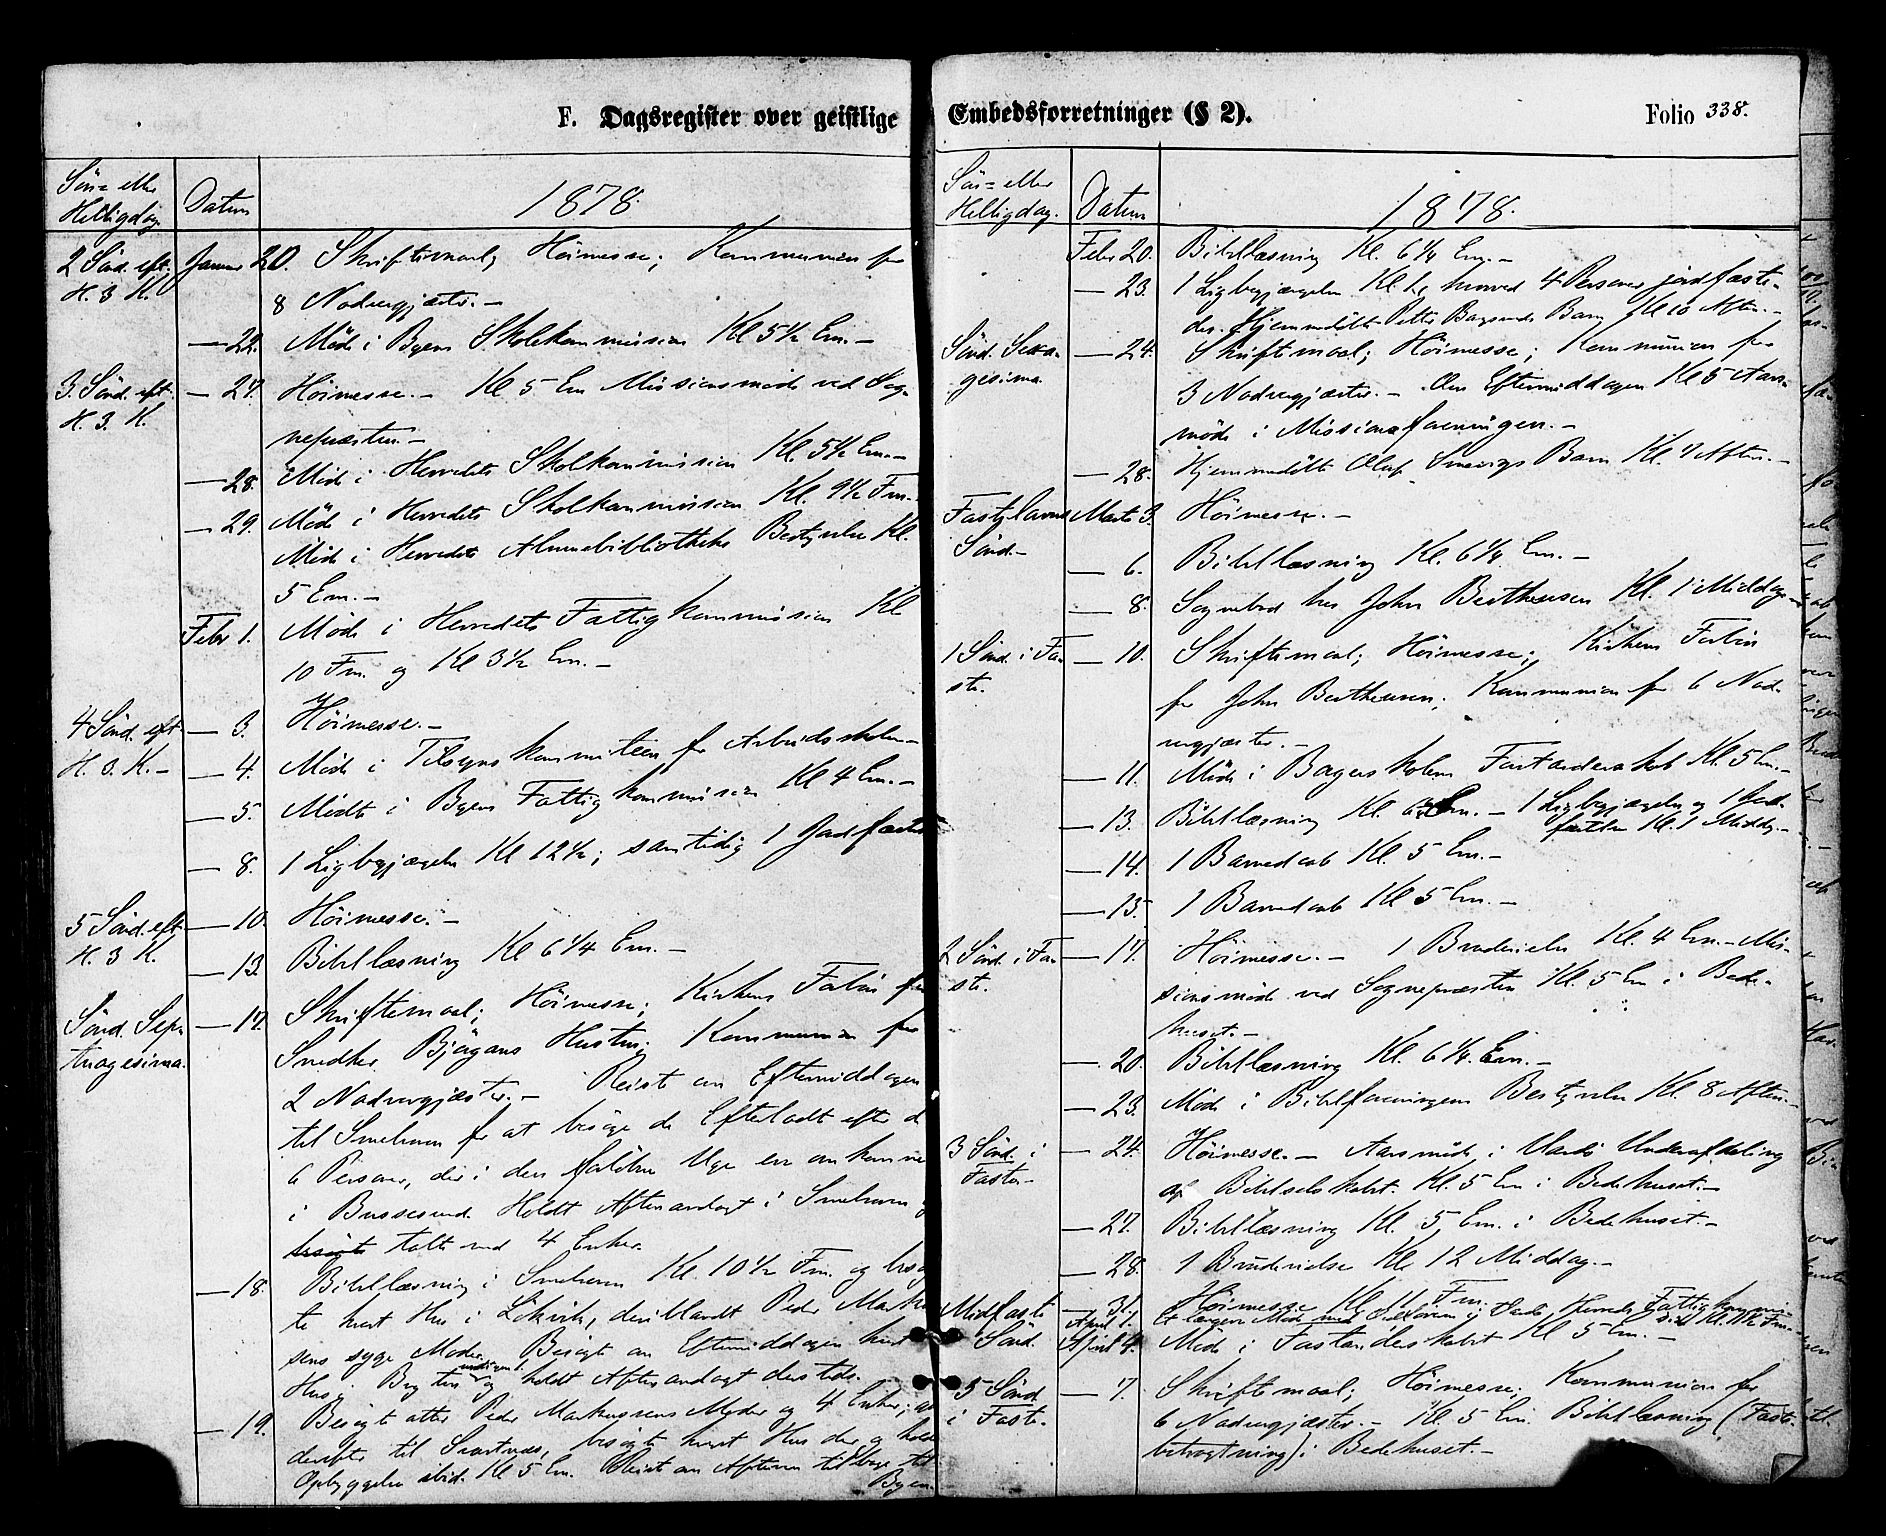 F. Dagsregister over geistlige Embedsforretninger (§ 2). Folio 338.
Søn= eller Helligdag Datum 1878.
2 Sönd. eft. H. 3 K. Januar 20. Skriftemaal; Höimesse; Kommunion for
8 Nadvergjæster.-
— 22. Möde i Byens Skolekommission Kl 5 1/2 Em.-
3. Sönd. eft. H. 3. K. — 27. Höimesse.- Kl 5 Em Missionsmöde ved Sog-
nepræsten.-
— 28. Möde i Herredets Skolkommission Kl. 5 1/2 Em.-
— 29. Möde i Herredets Skolkommission Kl. 9 1/2 Fm.-
Möde i Herredets Almuebibliotheks Bestyrelse Kl.
5 Em.-
Febr 1. Möde i Herredets Fattigkommission Kl
10 Fm. og Kl 3 1/2 Em.-
4 Sönd. eft H. 3. K.- — 3. Höimesse.-
— 4. Möde i Tilsynskommiteen for Arbeidsskolen-
— 5. Mödte i Byens Fattigkommission Kl 4 Em.-
— 8. 1 Ligbegjængelse Kl 12 1/2; samtidig 1 Jordfæstelse
5 Sönd. eft H. 3 K. — 10. Höimesse.-
— 13. Bibellæsning Kl 6 1/4 Em.-
Sönd. Sep- tuagesima. — 17. Skriftemaal; Höimesse; Kirkens Forbön for
Snedker Bjørgans Hustru; Kommunion for
2 Nadvergjæster.- Reist om Eftermiddagen
til Smelroren for at besöge de Efterladte efter d
6 Personer, der i den forløbne Uge ere omkomne
i Bussesund. Holdt Aftenandagt i Smelroren
besögte talte med 4 Enker.
— 18. Bibellæsning i Smelroren Kl. 10 1/2 Fm. og besög-
te hvert Hus i Lökvik, deriblandt Peder Markus-
sens syge Moder. Besögt om Eftermiddagen hvert
Hus i og holdt Aftenandagt dersteds.
— 19. Besögt atter Peder Markussens Moder og 4 Enker;
derefter til Svartnæs, besögte hvert Hus der og holdt
Opbyggelse ibid. Kl 5 Em. Reist om Aftenen tilbage til
Byen.
Søn= eller Helligdag. Datum 1878.
Febr 20. Bibellæsning Kl. 6 1/4 Em.-
— 23. 1 Ligbegjængelse Kl. 1, hvorved 4 Personer jordfæste-
des. Hjemmedöbt Petter Barn Kl 10 Aften.-
Sönd. Sexa- gesima — 24. Skriftemaal; Höimesse; Kommunion for
3 Nadvergjæster.- Om Eftermiddagen Kl 5 Aars-
möde i Missionsforeningen.-
— 28. Hjemmedöbt Olaf Barn Kl. 7 Aften.-
Fastelavns Sönd.- Marts 3. Höimesse.-
— 6. Bibellæsning Kl. 6 1/4 Em.-
— 8. Sognebud hos John Berthensen Kl. 1 Middag.-
1 Sönd. i Fa- ste. — 10. Skriftemaal; Höimesse; Kirkens Forbön
for John Berthensen; Kommunion for 6 Nad-
vergjæster.-
— 11. Möde i Borgerskolens Forstanderskab Kl. 5 Em.-
— 13. Bibellæsning Kl. 6 Em.- 1 Ligbegjængelse og 1 Jord-
fæstelse Kl. 1 Middg.-
— 14. 1 Barnedaab Kl. 5 Em.-
— 15. 1 Barnedaab Kl 5 Em.-
2 Sönd. i Fa- ste. — 17. Höimesse.- 1 Brudevielse Kl. 4 Em.- Mis-
sionsmöde ved Sognepræsten Kl. 5 Em i Bede-
huset.-
— 20. Bibellæsning Kl. 6 1/4 Em.-
— 23. Möde i Bibelforeningens Bestyrelse Kl. 8 Aften.-
3 Sönd. i Faste.- — 24. Höimesse.- Aarsmöde i Vardö Underafdeling
af Bibelselskabet. Kl. 5 Em i Bedehuset.-
— 27. Bibellæsning Kl. 5 Em. i Bedehuset.-
— 28. 1 Brudevielse Kl. 12 Middag.-
Midfaste Sönd. — 31. Höimesse Kl. 11 Fm.
April 1. Et længere Möde med i Vardö Herreds Fattigkommission Kl. 11 1/2 Fm.-
April 4. Möde i Forstanderskabet Kl 5 Em.-
5 Sönd i Faste. — 7. Skriftemaal; Höimesse; Kommunion for
6 Nadvergjæster.- Kl. 5 Em. Bibellæsning (Faste-
betragtning) i Bedehuset.-